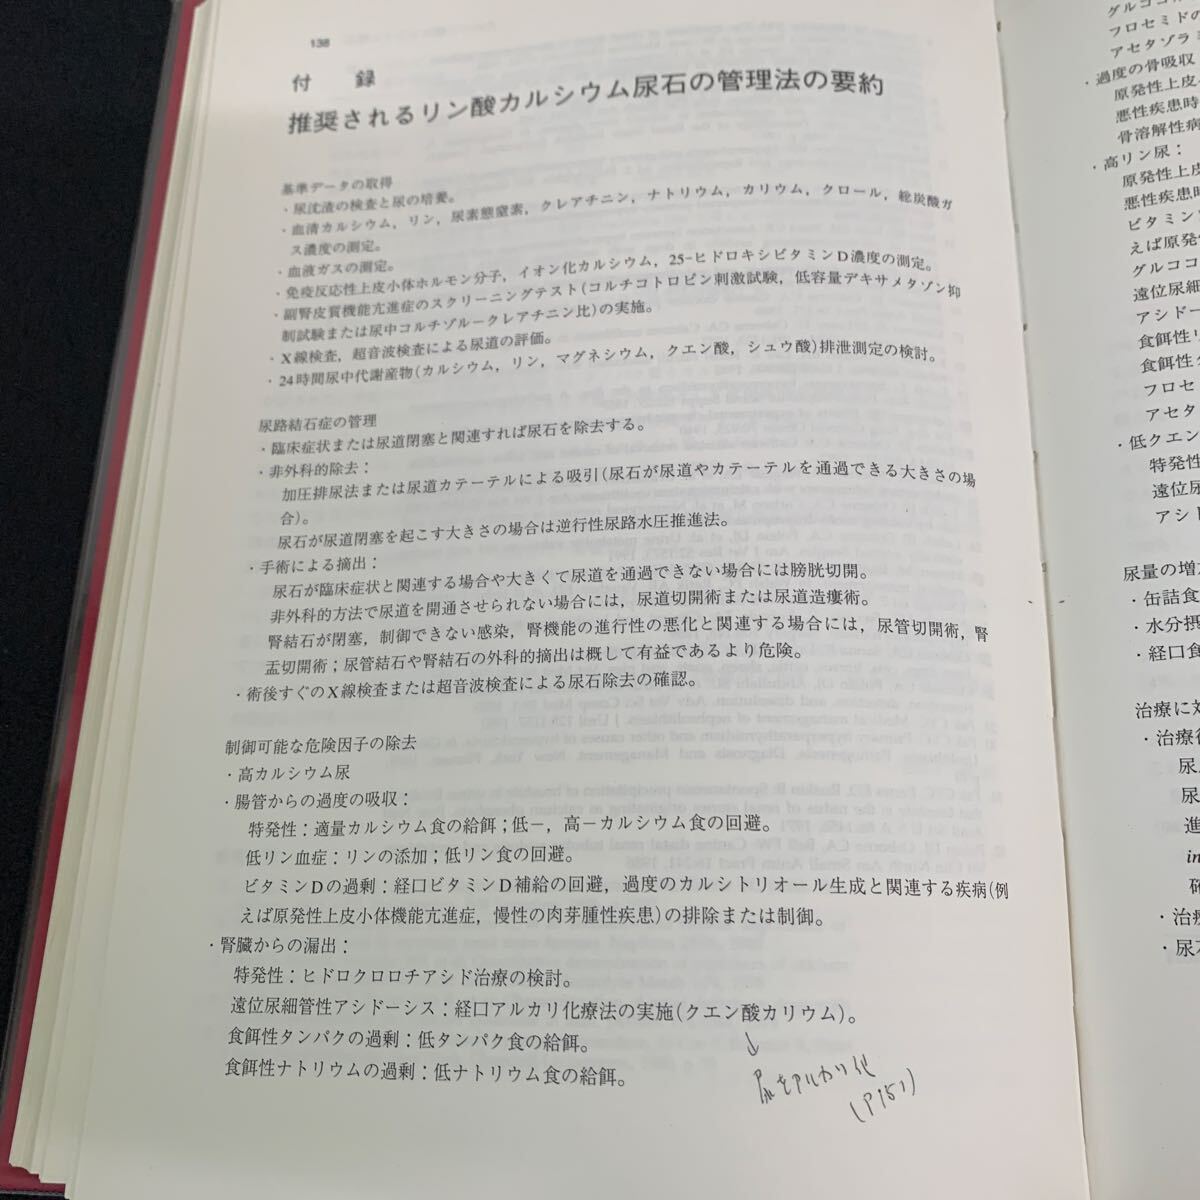 138
付　録
推奨されるリン酸カルシウム尿石の管理法の要約
基準データの取得
・尿沈渣の検査と尿の培養。
・血清カルシウム，リン，尿素態窒素，クレアチニン，ナトリウム，カリウム，クロール，総炭酸ガ
ス濃度の測定。
・血液ガスの測定。
・免疫反応性上皮小体ホルモン分子，イオン化カルシウム，25-ヒドロキシビタミンD濃度の測定。
・副腎皮質機能亢進症のスクリーニングテスト(コルチコトロピン刺激試験，低容量デキサメタゾン抑
制試験または尿中コルチゾルークレアチニン比)の実施。
・X線検査，超音波検査による尿道の評価。
・24時間尿中代謝産物(カルシウム，リン，マグネシウム，クエン酸，シュウ酸)排泄測定の検討。
尿路結石症の管理
・臨床症状または尿道閉塞と関連すれば尿石を除去する。
・非外科的除去：
加圧排尿法または尿道カテーテルによる吸引(尿石が尿道やカテーテルを通過できる大きさの場
合)。
尿石が尿道閉塞を起こす大きさの場合は逆行性尿路水圧推進法。
・手術による摘出：
尿石が臨床症状と関連する場合や大きくて尿道を通過できない場合には膀胱切開。
非外科的方法で尿道を開通させられない場合には，尿道切開術または尿道造瘻術。
腎結石が閉塞，制御できない感染，腎機能の進行性の悪化と関連する場合には，尿管切開術，腎
盂切開術；尿管結石や腎結石の外科的摘出は概して有益であるより危険。
・術後すぐのX線検査または超音波検査による尿石除去の確認。
制御可能な危険因子の除去
・高カルシウム尿
・腸管からの過度の吸収：
特発性：適量カルシウム食の給餌；低－，高－カルシウム食の回避。
低リン血症：リンの添加；低リン食の回避。
ビタミンDの過剰：経口ビタミンD補給の回避，過度のカルシトリオール生成と関連する疾病(例
えば原発性上皮小体機能亢進症，慢性の肉芽腫性疾患)の排除または制御。
・腎臓からの漏出：
特発性：ヒドロクロロチアシド治療の検討。
遠位尿細管性アシドーシス：経口アルカリ化療法の実施(クエン酸カリウム)。
食餌性タンパクの過剰：低タンパク食の給餌。
食餌性ナトリウムの過剰：低ナトリウム食の給餌。
↓
尿をアルカリ化
(P151)
グルココ
フロセミドの
アセタゾラミ
・過度の骨吸収
原発性上皮小
悪性疾患時
骨溶解性病
・高リン尿：
原発性上皮
悪性疾患時
ビタミン
えば原発
グルココ
遠位尿細
アシドー
食餌性リ
食餌性
フロセ
アセタ
・低クエン
特発性
遠位尿
アシド
尿量の増
・缶詰食
・水分摂
・経口食
治療に対
・治療後
尿
尿
進
in
確
・治療
・尿石